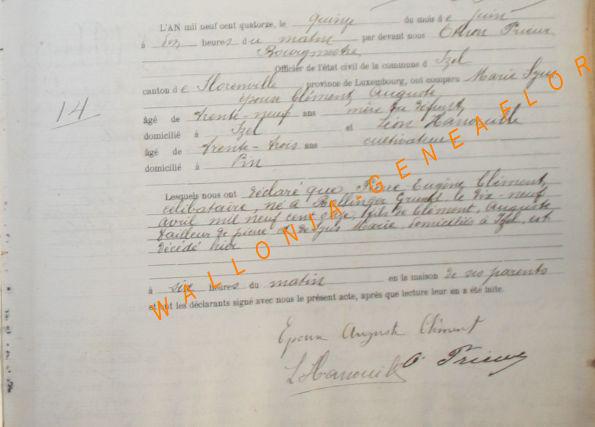 L'AN mil neuf cent quatorze, le quinze du mois de juin
à dix heures du matin par devant nous Orion Prieur
Bourgmestre
Officier de l'état civil de la commune d'Izel
canton de Florenville province de Luxembourg, ont comparu Marie
époux Clément Auguste
âgé de trente-neuf ans mère du défunt,
domicilié à Izel et Léon Hanouille
âgé de trente-trois ans cultivateur
domicilié à Pin
Lesquels nous ont déclaré que, René Eugène Clément,
célibataire, né à Bollinger Grund, le dix-neuf
avril mil neuf cent, fils de Clément, Auguste
tailleur de pierre et de Marie, domiciliés à Izel, est
décédé hier
à six heures du matin en la maison de ses parents
et ont les déclarants signé avec nous le présent acte, après que lecture leur en a été faite.
14
Epoux Auguste Clément
L Hanouille O Prieur
WALLONIA-GENEAFLOR